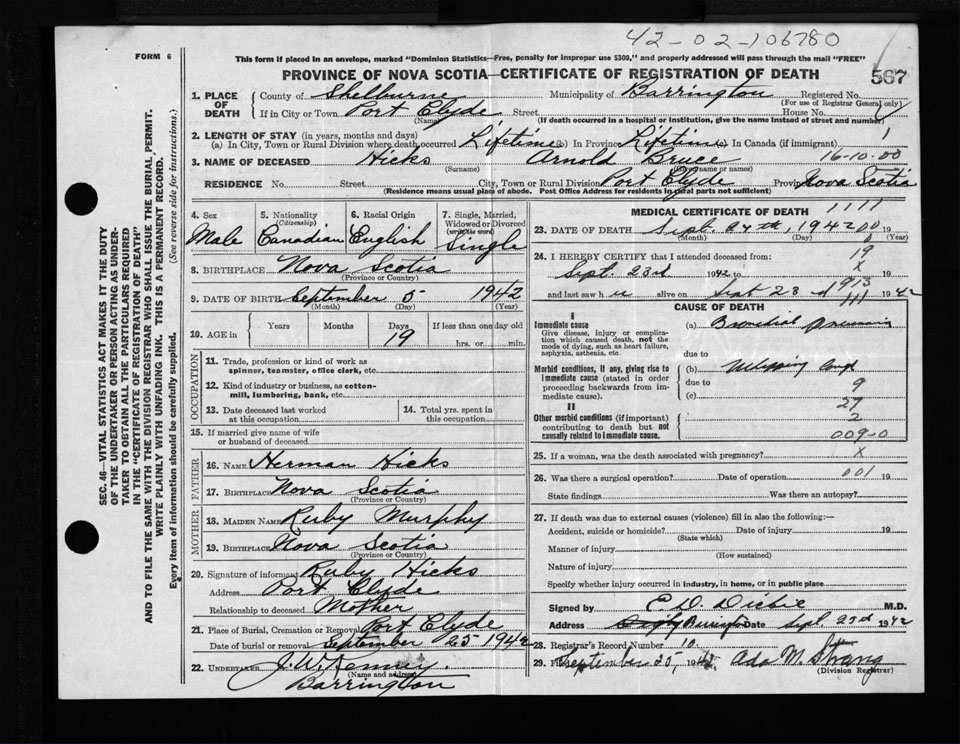 42-02-106780
FORM 6
This form if placed in an envelope, marked "Dominion Statistics—Free, penalty for improper use $300," and properly addressed will pass through the mail "FREE"
PROVINCE OF NOVA SCOTIA—CERTIFICATE OF REGISTRATION OF DEATH
567
SEC. 46—VITAL STATISTICS ACT MAKES IT THE DUTY
OF THE UNDERTAKER OR PERSON ACTING AS UNDER-
TAKER TO OBTAIN ALL THE PARTICULARS REQUIRED
IN THE "CERTIFICATE OF REGISTRATION OF DEATH"
AND TO FILE THE SAME WITH THE DIVISION REGISTRAR WHO SHALL ISSUE THE BURIAL PERMIT.
WRITE PLAINLY WITH UNFADING INK. THIS IS A PERMANENT RECORD.
Every item of information should be carefully supplied. (See reverse side for instructions.)
1. PLACE OF DEATH County of Shelburne Municipality of Barrington Registered No.
(For use of Registrar General only)
If in City or Town Port Clyde Street House No.
(Name) (If death occurred in a hospital or institution, give the name instead of street and number)
2. LENGTH OF STAY (in years, months and days) 1
(a) In City, Town or Rural Division where death occurred Lifetime (b) In Province Lifetime (c) In Canada (if immigrant)
3. NAME OF DECEASED Hicks Arnold Bruce 16-10-00
(Surname) (Christian name or names)
RESIDENCE No. Street City, Town or Rural Division Port Clyde Province Nova Scotia
(Residence means usual place of abode. Post Office Address for residents in rural parts not sufficient)
4. Sex Male
5. Nationality (Citizenship) Canadian
6. Racial Origin English
7. Single, Married, Widowed or Divorced (write the word) Single
8. BIRTHPLACE Nova Scotia
(Province or Country)
9. DATE OF BIRTH September 5 1942
(Month) (Day) (Year)
10. AGE in Years Months Days 19 If less than one day old hrs. or min.
OCCUPATION
11. Trade, profession or kind of work as spinner, teamster, office clerk, etc.
12. Kind of industry or business, as cotton-mill, lumbering, bank, etc.
13. Date deceased last worked at this occupation
14. Total yrs. spent in this occupation
15. If married give name of wife or husband of deceased
FATHER
16. NAME Herman Hicks
17. BIRTHPLACE Nova Scotia
(Province or Country)
MOTHER
18. MAIDEN NAME Ruby Murphy
19. BIRTHPLACE Nova Scotia
(Province or Country)
20. Signature of informant Ruby Hicks
Address Port Clyde
Relationship to deceased Mother
21. Place of Burial, Cremation or Removal Port Clyde
Date of burial or removal September 25 1942
22. UNDERTAKER J. W.
(Name and address)
Barrington
MEDICAL CERTIFICATE OF DEATH 1111
23. DATE OF DEATH Sept. 24th, 1942 00 19
(Month) (Day) (Year)
24. I HEREBY CERTIFY that I attended deceased from: 19
Sept. 23rd 1942 to X 19
and last saw h alive on Sept 23rd 1942
913
111
CAUSE OF DEATH
I
Immediate cause (a) Bronchial Pneumonia
Give disease, injury or complication which caused death, not the mode of dying, such as heart failure, asphyxia, asthenia, etc.
due to
Morbid conditions, if any, giving rise to immediate cause (stated in order proceeding backwards from immediate cause). (b) Whooping Cough
due to 9
(c)
27
II
Other morbid conditions (if important) contributing to death but not causally related to immediate cause. 2
009-0
25. If a woman, was the death associated with pregnancy? X
26. Was there a surgical operation? Date of operation 001 19
State findings Was there an autopsy?
27. If death was due to external causes (violence) fill in also the following:—
Accident, suicide or homicide? Date of injury 19
(State which)
Manner of injury
(How sustained)
Nature of injury
Specify whether injury occurred in industry, in home, or in public place
Signed by E. D. M.D.
Address Date Sept. 23rd 1942
28. Registrar's Record Number 10
29. Filed September 25, 1942 Ada M. Strang
(Division Registrar)